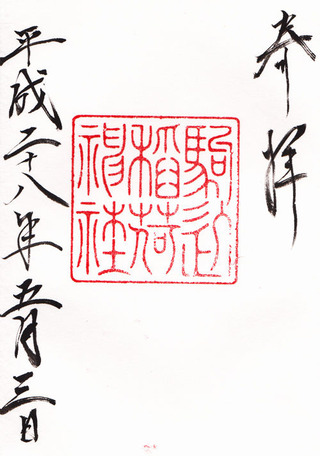 奉拝
駒込
稲荷
神社
平成二十八年五月三日